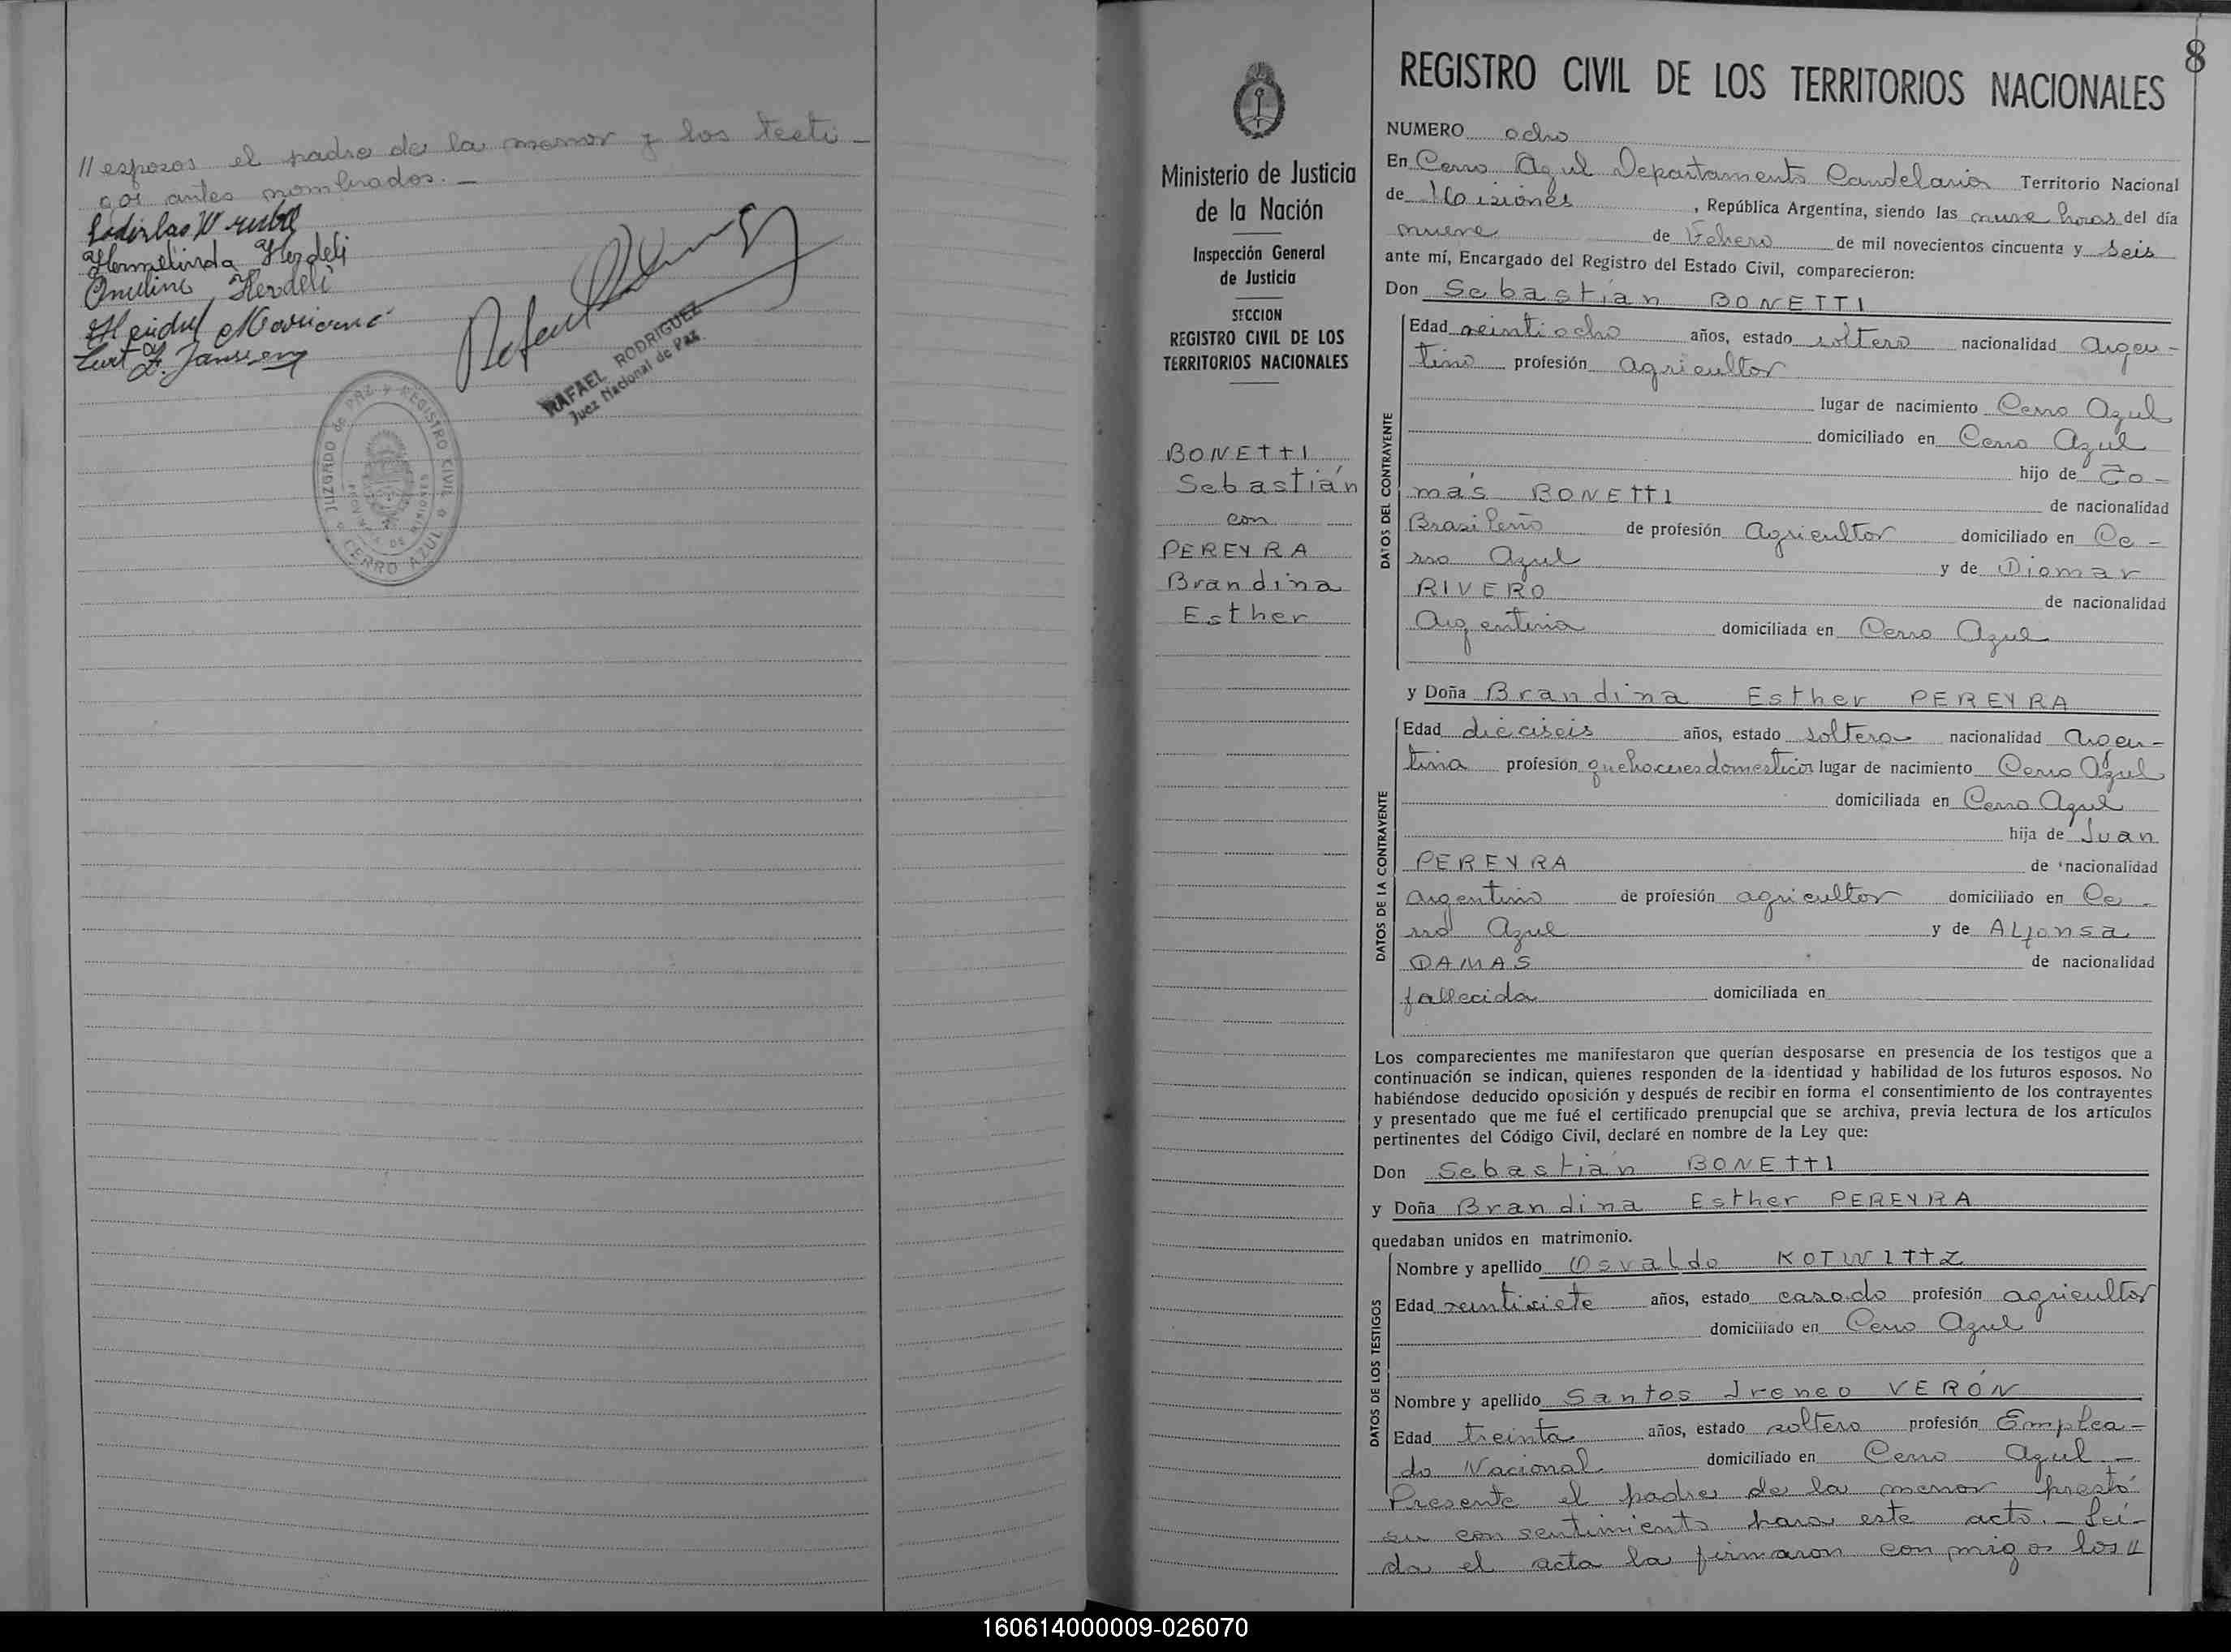 // esposos el padre de la menor y los testi-
gos antes nombrados. —
Ladislao Wrubel
Hermelinda Herdeli
Kurt F. Janssen
RAFAEL RODRIGUEZ
Juez Nacional de Paz
JUZGADO de PAZ y REGISTRO CIVIL
PROVINCIA DE MISIONES
CERRO AZUL
8
REGISTRO CIVIL DE LOS TERRITORIOS NACIONALES
Ministerio de Justicia
de la Nación
Inspección General
de Justicia
SECCION
REGISTRO CIVIL DE LOS
TERRITORIOS NACIONALES
BONETTI
Sebastián
con
PEREYRA
Brandina
Esther
NUMERO ocho
En Cerro Azul Departamento Candelaria Territorio Nacional
de Misiones, República Argentina, siendo las nueve horas del día
nueve de Febrero de mil novecientos cincuenta y seis
ante mí, Encargado del Registro del Estado Civil, comparecieron:
Don Sebastián BONETTI
DATOS DEL CONTRAYENTE
Edad veintiocho años, estado soltero nacionalidad Argen-
tino profesión Agricultor
lugar de nacimiento Cerro Azul
domiciliado en Cerro Azul
hijo de To-
más BONETTI de nacionalidad
Brasileño de profesión Agricultor domiciliado en Ce-
rro Azul y de Diomar
RIVERO de nacionalidad
Argentina domiciliada en Cerro Azul
y Doña Brandina Esther PEREYRA
DATOS DE LA CONTRAYENTE
Edad dieciseis años, estado soltera nacionalidad Argen-
tina profesión quehaceres domesticos lugar de nacimiento Cerro Azul
domiciliada en Cerro Azul
hija de Juan
PEREYRA de nacionalidad
argentino de profesión agricultor domiciliado en Ce-
rro Azul y de ALfonsa
DAMAS de nacionalidad
fallecida domiciliada en
Los comparecientes me manifestaron que querían desposarse en presencia de los testigos que a
continuación se indican, quienes responden de la identidad y habilidad de los futuros esposos. No
habiéndose deducido oposición y después de recibir en forma el consentimiento de los contrayentes
y presentado que me fué el certificado prenupcial que se archiva, previa lectura de los artículos
pertinentes del Código Civil, declaré en nombre de la Ley que:
Don Sebastián BONETTI
y Doña Brandina Esther PEREYRA
quedaban unidos en matrimonio.
DATOS DE LOS TESTIGOS
Nombre y apellido Osvaldo KOTWITTZ
Edad veintisiete años, estado casado profesión agricultor
domiciliado en Cerro Azul
Nombre y apellido Santos Ireneo VERÓN
Edad treinta años, estado soltero profesión Emplea-
do Nacional domiciliado en Cerro Azul —
Presente el padre de la menor prestó
su consentimiento para este acto. — Leí-
da el acta la firmaron conmigo los //
160614000009-026070